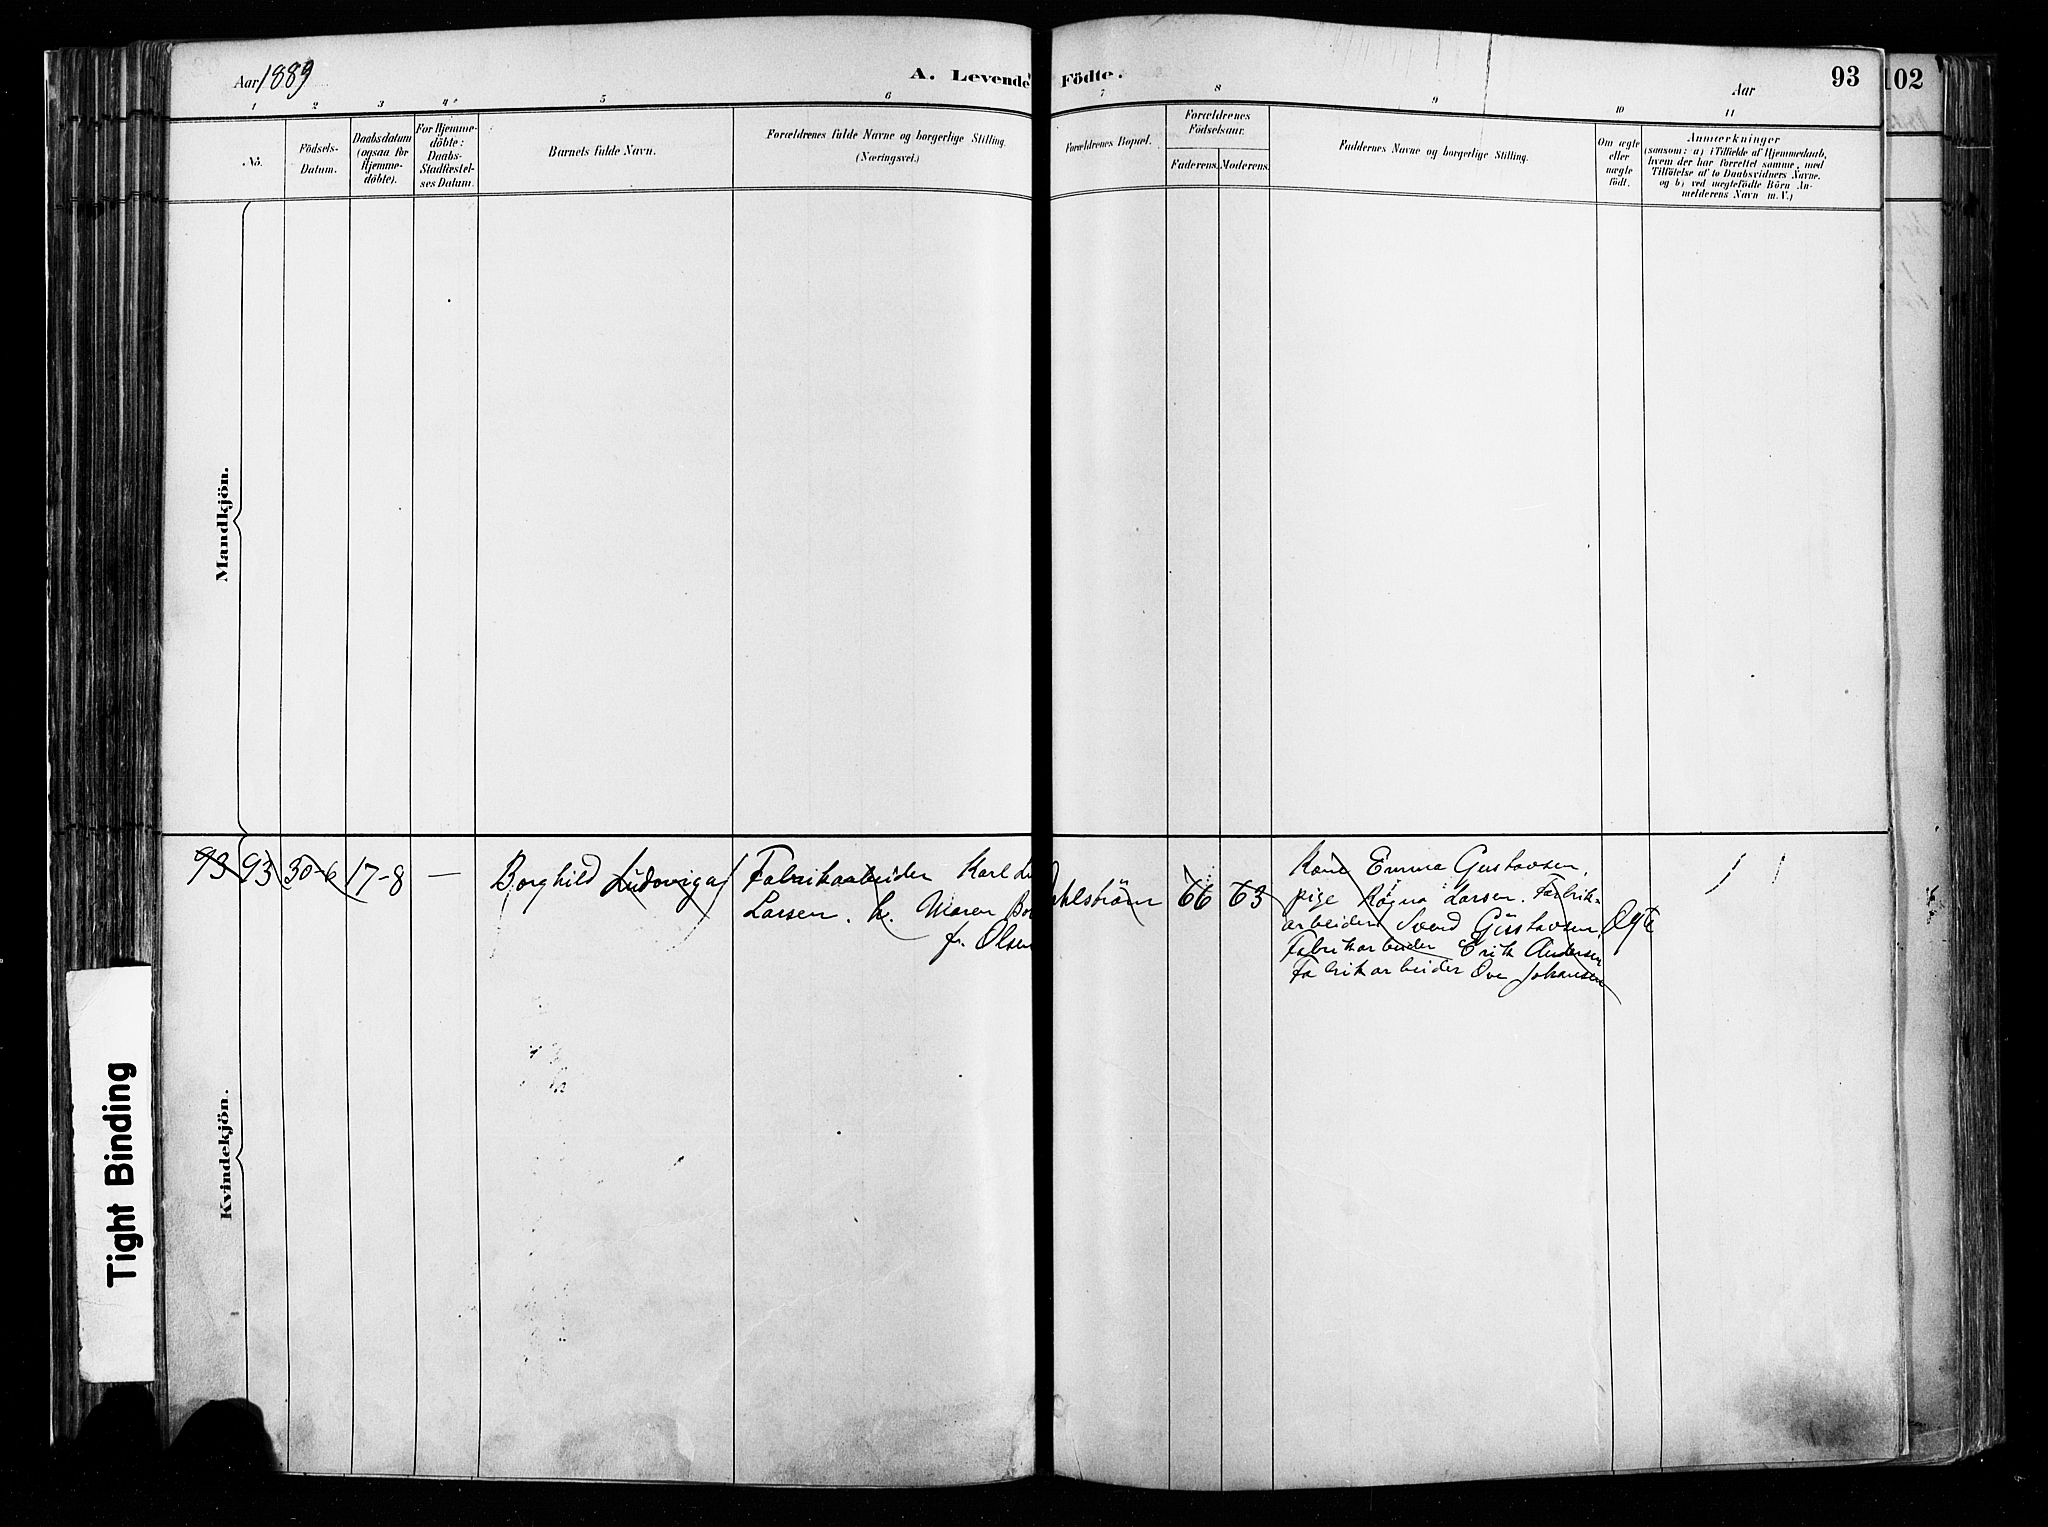 Aar 1889
A. Levende Födte.
Aar
93
102
1
2
3
4
5
6
7
8
9
10
11
No.
Födsels-
Datum.
Daabsdatum
(ogsaa for
Hjemme-
döbte).
For Hjemme-
döbte:
Daabs-
Stadfæstel-
ses Datum.
Barnets fulde Navn.
Forældrenes fulde Navne og borgerlige Stilling.
(Næringsvei.)
Forældrenes Bopæl.
Forældrenes
Födselsaar.
Faderens.
Moderens.
Faddernes Navne og borgerlige Stilling.
Om ægte
eller
uægte
født.
Anmærkninger
(saasom: a) i Tilfælde af Hjemmedaab,
hvem der har forrettet samme, med
Tilføielse af to Daabsvidners Navne.
og b) ved uægtefødte Börn An-
melderens Navn m. V.)
Mandkjön.
Kvindekjön.
93 93 30-6 17-8 —
Borghild Ludoviga
Fabrikarbeider Karl
Larsen. h. Maren
f. Olsen
ahlström
66
63
Kone Emma Gustavsen,
pige Ragna Larsen. Fabrik-
arbeider Svend Gustavsen,
Fabrikarbeider Erik Andersen
Fabrikarbeider Ove Johansen
Ægte
Tight Binding